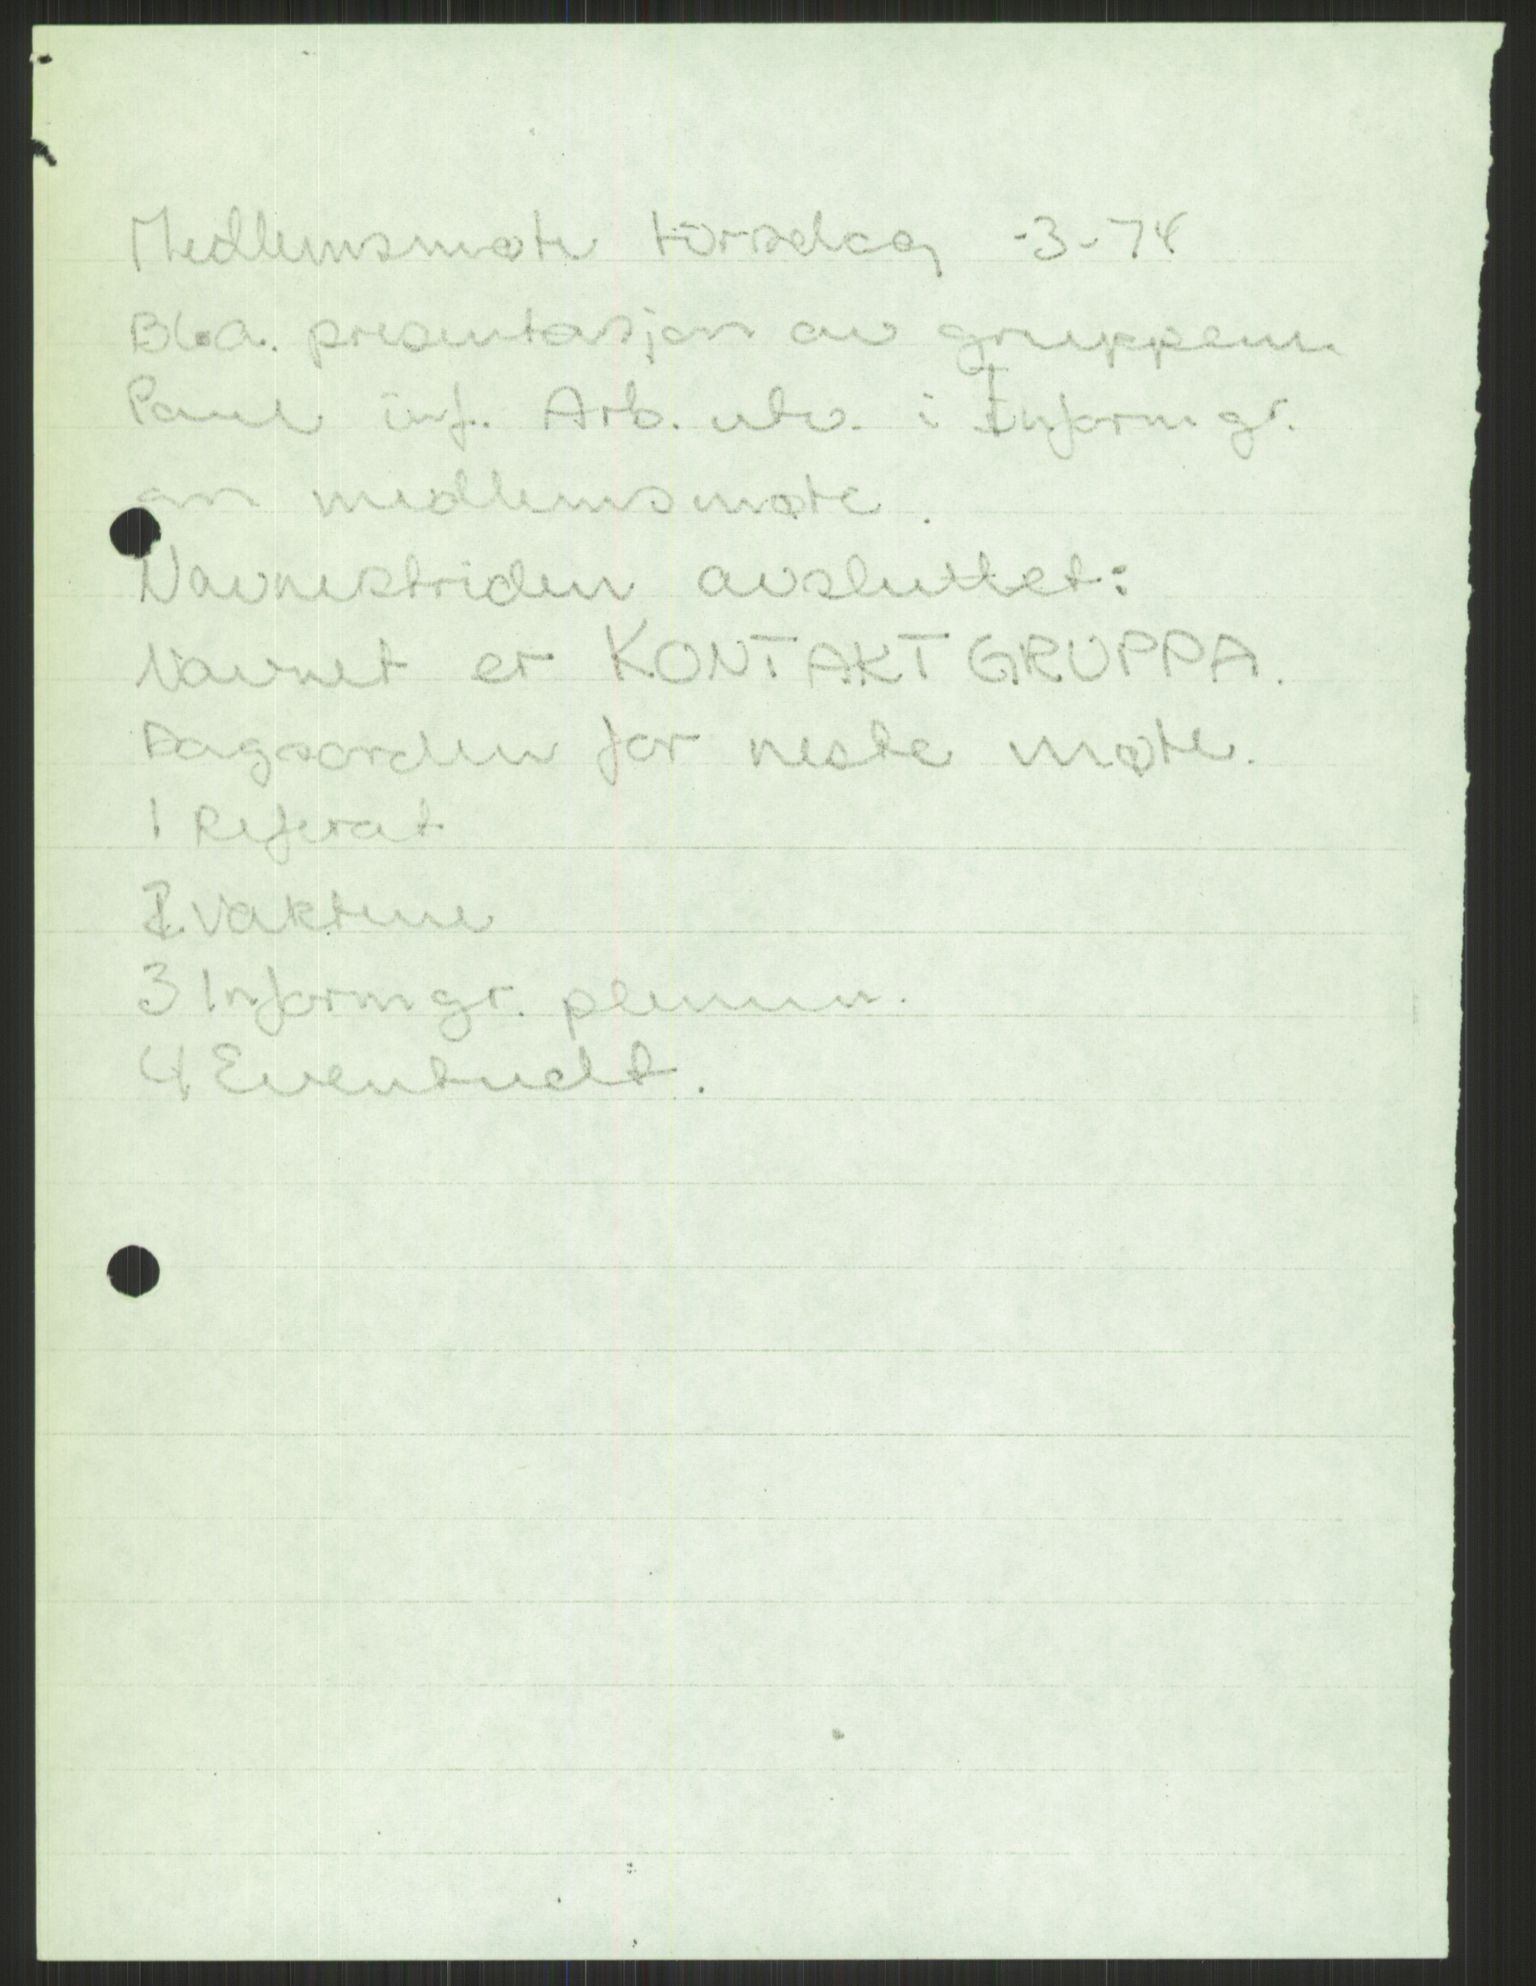 Medlemsmøte torsdag -3-74
Bl.a. presentasjon av gruppene
Paul inf. Arb. utv. i Informgr.
om medlemsmøte.
Navnestriden avsluttet:
Navnet er KONTAKTGRUPPA.
Dagsorden for neste møte.
1 Referat
2. Vaktene
3 Informgr. plenum.
4 Eventuelt.